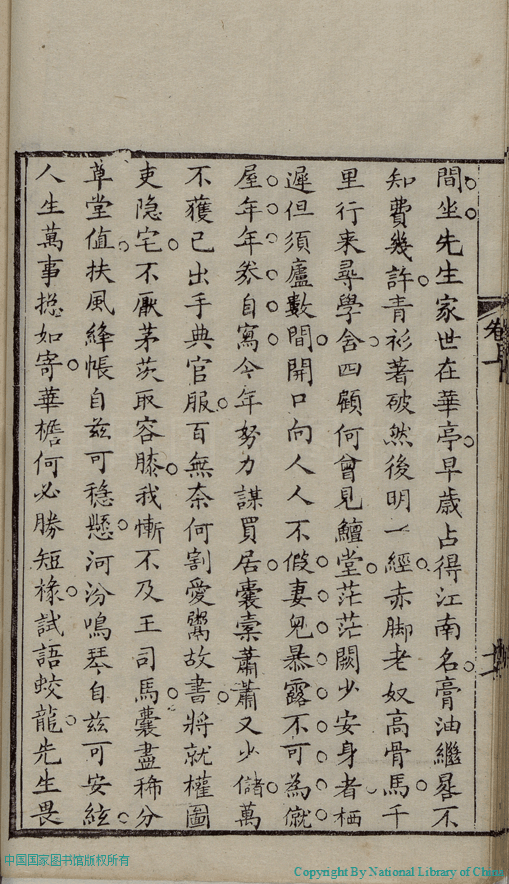 間坐先生家世在華亭早歲占得江南名膏油繼晷不
知費幾許青衫著破然後明一經赤脚老奴高骨馬千
里行来尋學舍四顧何曾見鱣堂茫茫闕少安身者栖
遲但須廬數間開口向人人不假妻兒暴露不可為僦
屋年年券自寫今年努力謀買居囊橐蕭蕭又少儲萬
不獲已出手典官服百無奈何割愛鬻故書將就權圖
吏隐宅不厭茅茨取容膝我慚不及王司馬囊盡稀分
草堂值扶風絳帳自兹可穩懸河汾鳴琴自兹可安絃
人生萬事揔如寄華檐何必勝短椽試語蛟龍先生畏
卷一
十一
中国国家图书馆版权所有
Copyright By National Library of China